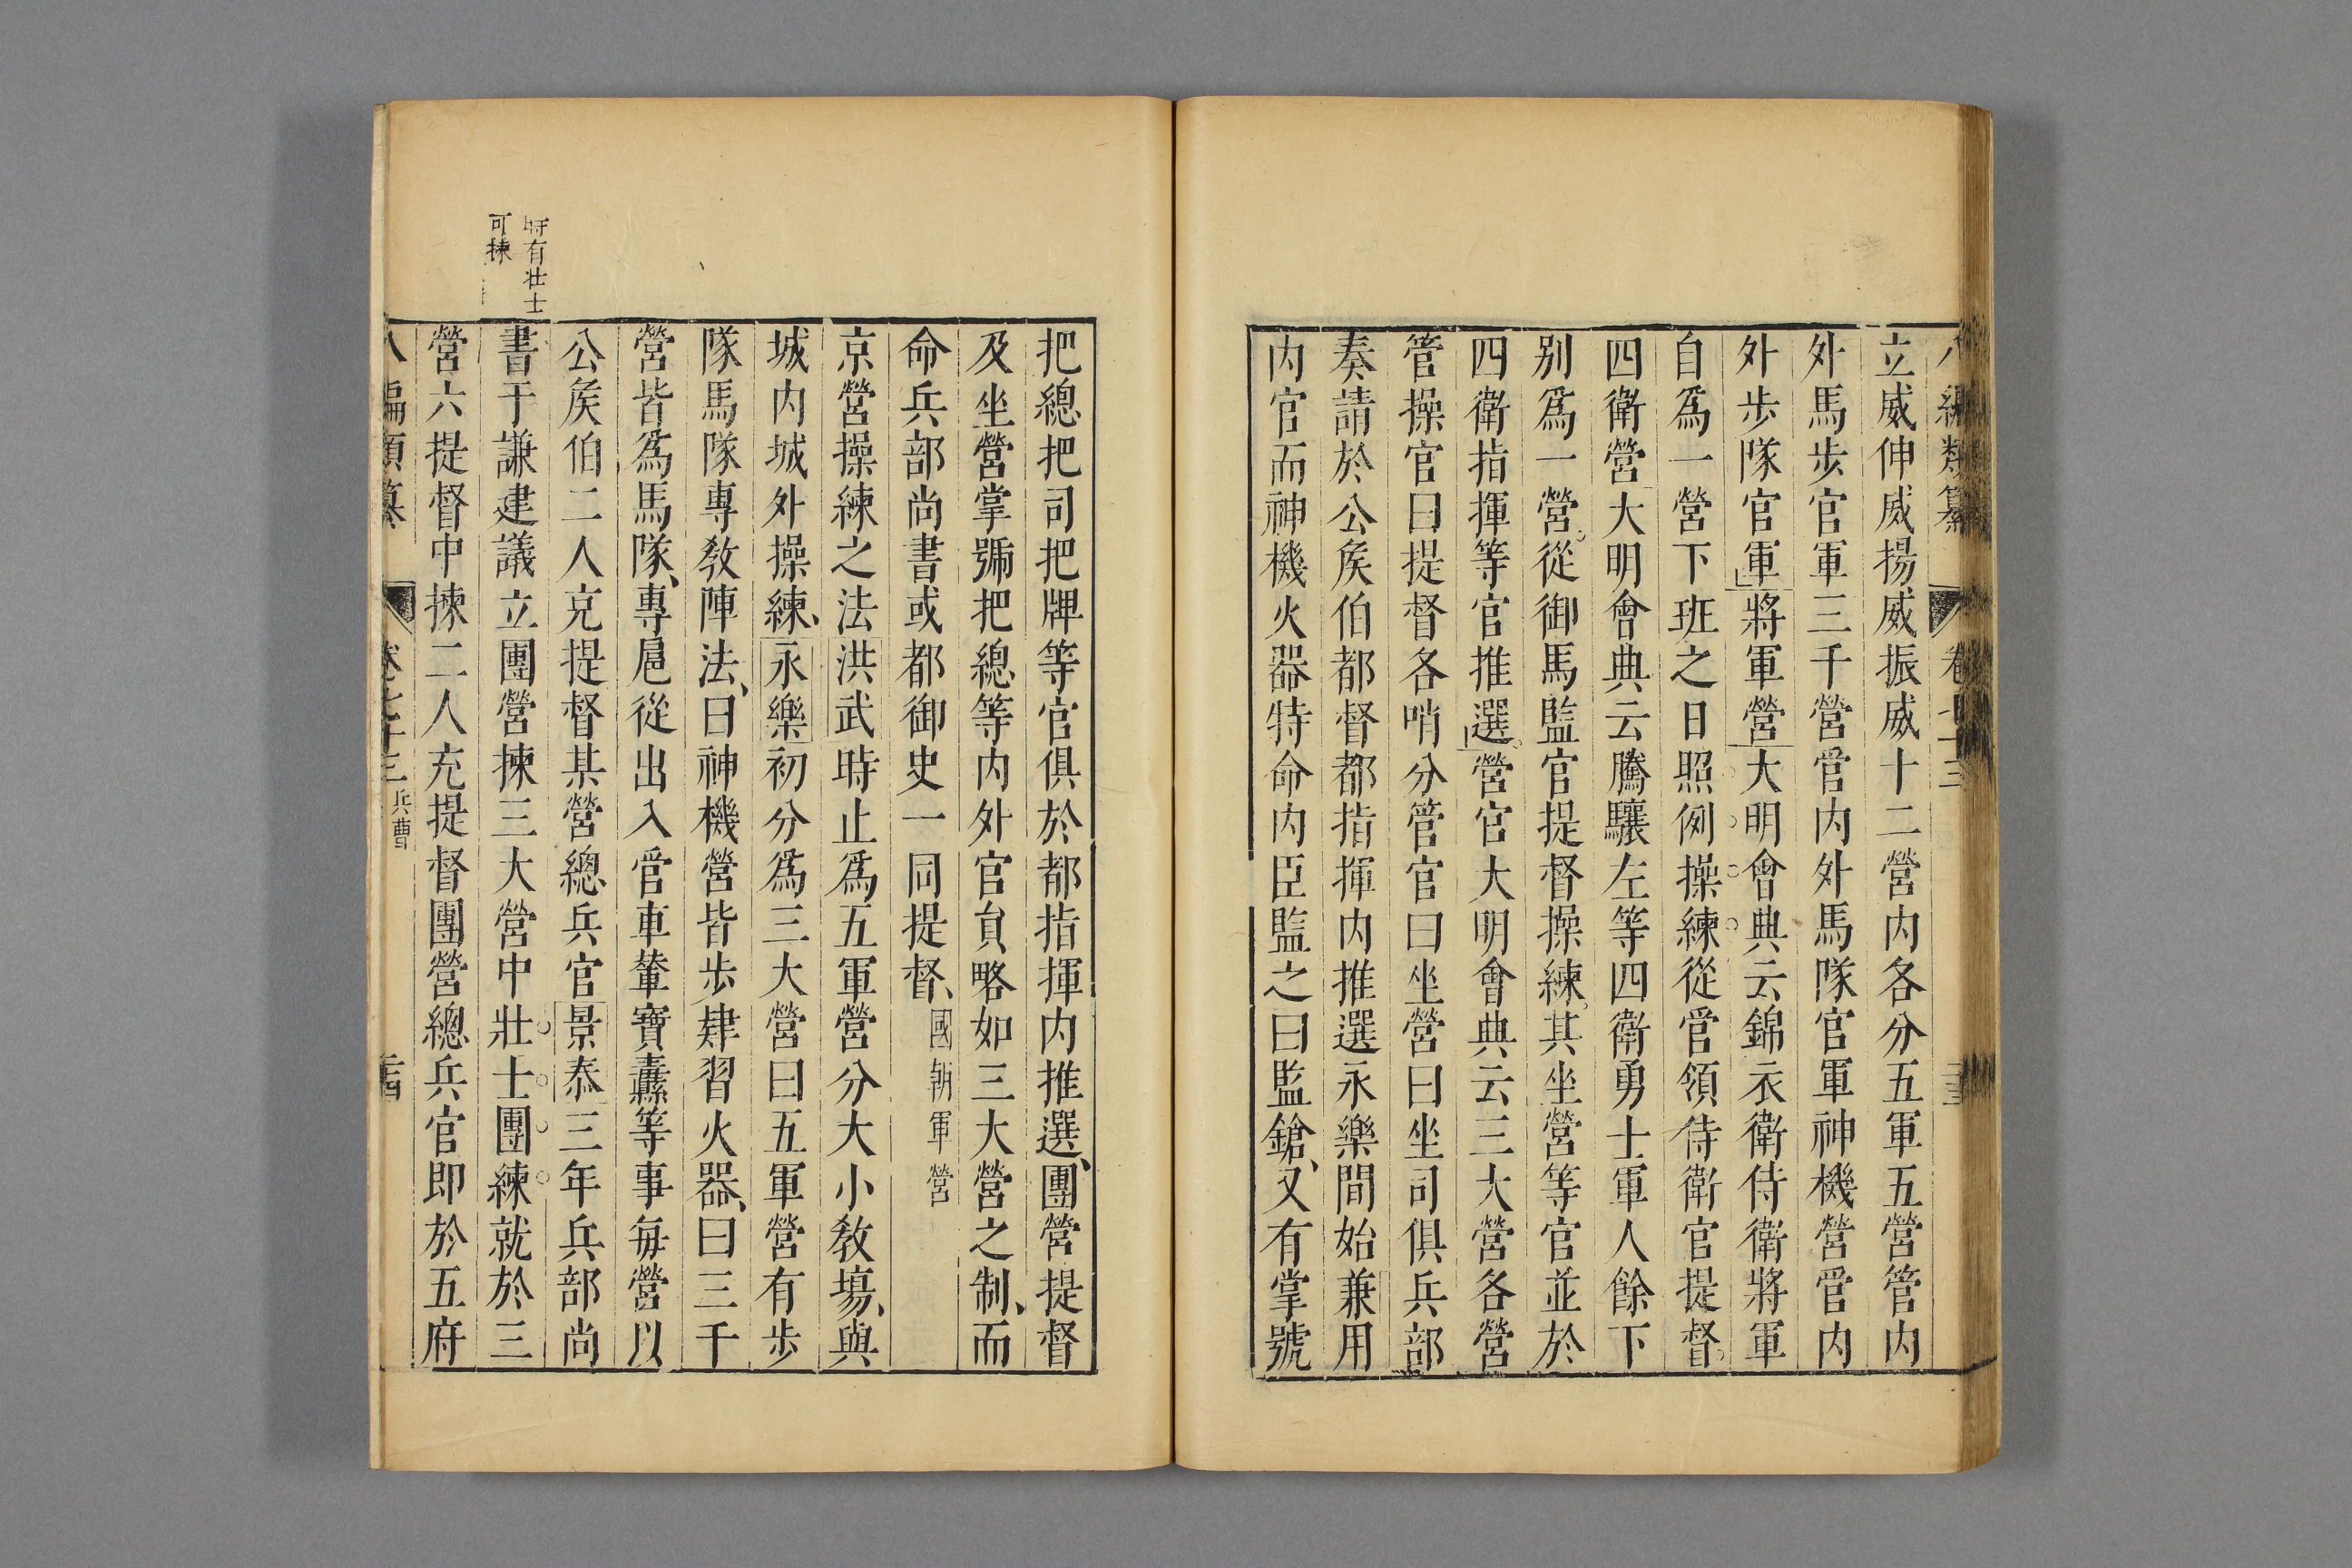 八編類纂 卷七十三
立威伸威揚威振威十二營内各分五軍五營管内
外馬步官軍三千營管内外馬隊官軍神機營管内
外步隊官軍將軍營大明會典云錦衣衛侍衛將軍
自爲一營下班之日照例操練從管領侍衛官提督
四衛營大明會典云騰驤左等四衛勇士軍人餘下
别爲一營從御馬監官提督操練其坐營等官並於
四衛指揮等官推選營官大明會典云三大營各營
管操官曰提督各哨分管官曰坐營曰坐司俱兵部
奏請於公矦伯都督都指揮内推選永樂間始兼用
内官而神機火器特命内臣監之曰監鎗又有掌號
把總把司把牌等官俱於都指揮内推選團營提督
及坐營掌號把總等内外官負略如三大營之制而
命兵部尚書或都御史一同提督國朝軍營
京營操練之法洪武時止爲五軍營分大小教場與
城内城外操練永樂初分爲三大營曰五軍營有步
隊馬隊專教陣法曰神機營皆步肄習火器曰三千
營皆爲馬隊專扈從出入管車輦寶纛等事每營以
公矦伯二人充提督某營總兵官景泰三年兵部尚
時有壮士
可揀
書于謙建議立團營揀三大營中壯士團練就於三
營六提督中揀二人充提督團營總兵官即於五府
八編類纂 卷七十三 兵曹 二十四